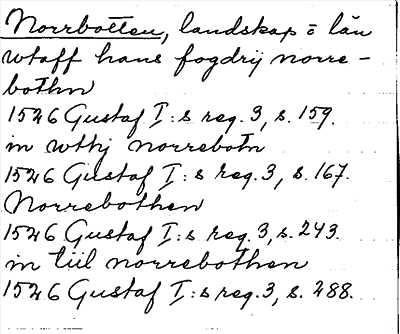 Norrbotten, landskap o län
wtaff hans fogdrij norre-
bothn
1526 Gustaf I:s reg. 3, s. 159.
in wthj norrebotn
1526 Gustaf I:s reg. 3, s. 167.
Norrebothen
1526 Gustaf I:s reg. 3, s. 243.
in tiil norrebothen
1526 Gustaf I:s reg. 3, s. 288.